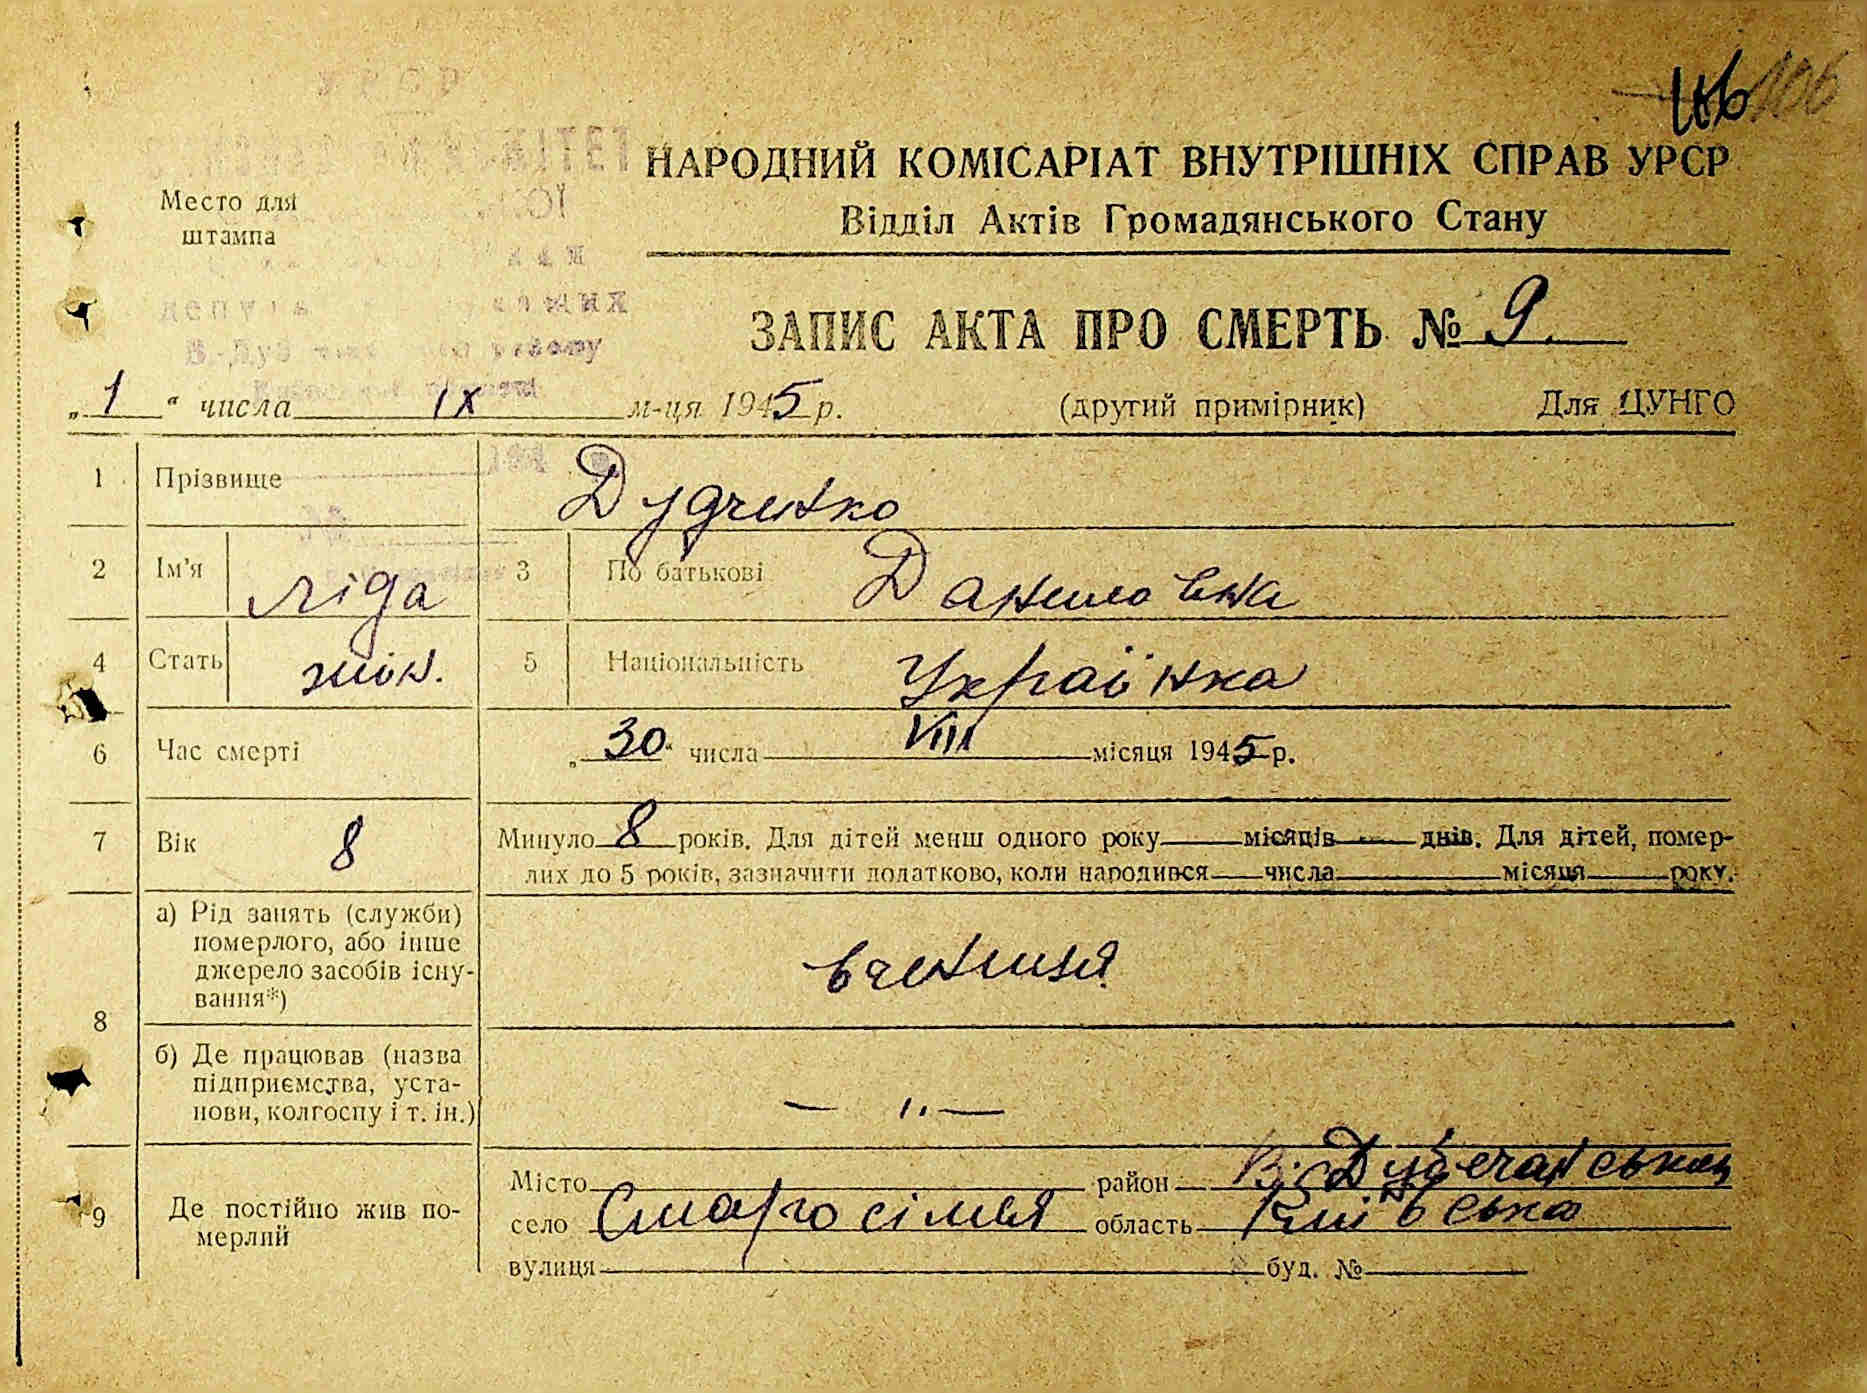 106 106
УРСР
НАРОДНИЙ КОМІСАРІАТ ВНУТРІШНІХ СПРАВ УРСР
Место для
штампа
Відділ Актів Громадянського Стану
ЗАПИС АКТА ПРО СМЕРТЬ № 9
„1“ числа IX м-ця 1945 р. (другий примірник) Для ЦУНГО
1 Прізвище Дудченко
2 Ім'я Ліда 3 По батькові Даниловна
4 Стать жін. 5 Національність Українка
6 Час смерті „30“ числа VIII місяця 1945 р.
7 Вік 8 Минуло 8 років. Для дітей менш одного року — місяців — днів. Для дітей, помер-
лих до 5 років, зазначити додатково, коли народився — числа — місяця — року.
8 а) Рід занять (служби)
померлого, або інше
джерело засобів існу-
вання*) вчениця
б) Де працював (назва
підприємства, уста-
нови, колгоспу і т. ін.) — „ —
9 Де постійно жив по-
мерлий
Місто район В. Дубечанський
село Старосілля область Київська
вулиця буд. №